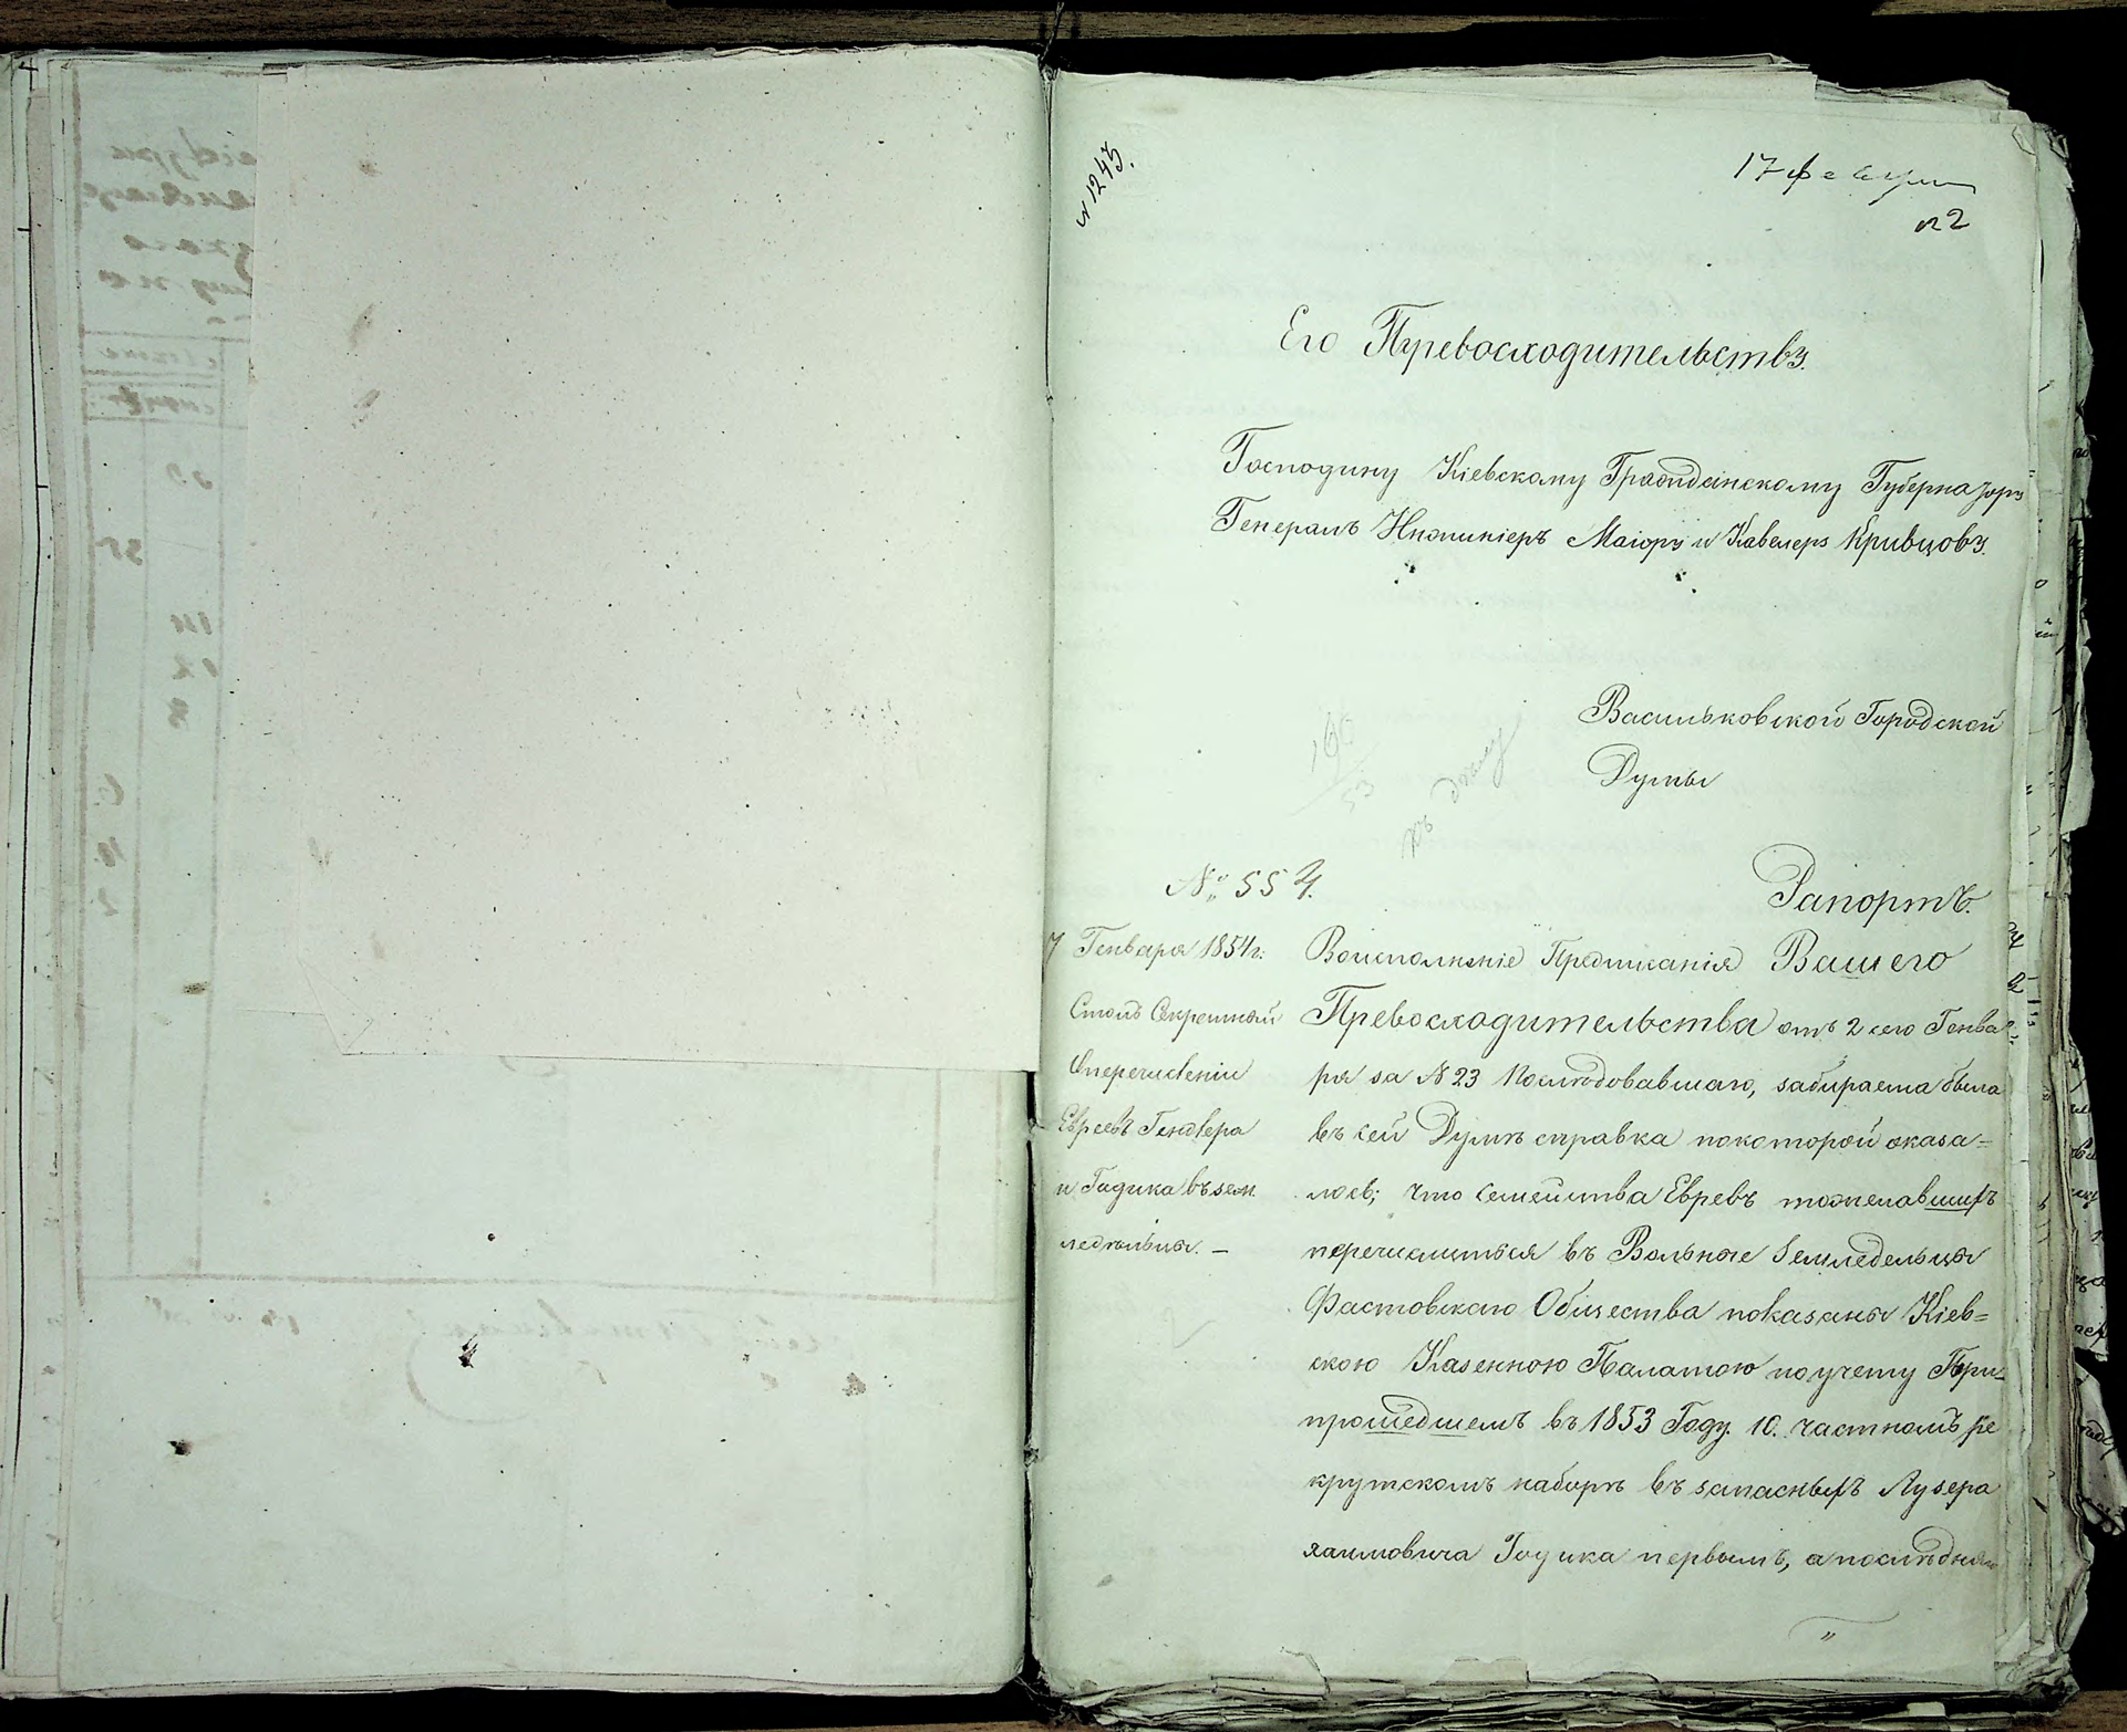 N 1243.
17 февраля
N 2
Его Превосходительству.
Господину Кіевскому Гражданскому Губернатору
Генералъ Инжинiеръ Маіору и Кавалеру Кривцову.
Васильковской Городской
Думы
190
53
къ дѣлу
№ 554.
Рапортъ.
7 Генваря 1854 г:
Столъ Секретный
О перечисленіи
Евреевъ Гендлера
и Годика въ зем
ледѣльцы. –
Воисполненіе Предписанія Вашего
Превосходительства отъ 2 сего Генва
ря за № 23 послѣдовавшаго, забираема была
въ сей Думѣ справка покоторой оказа=
лось; что семейства Евревъ пожелавшихъ
перечислиться въ Вольные Земледельцы
Фастовскаго Общества показаны Кіев=
скою Казенною Палатою поучету При
прошедшемъ въ 1853 Году. 10. частномъ ре
крутскомъ наборѣ въ запасныхъ Лузера
хаимовича Годика первымъ, а послѣдняго